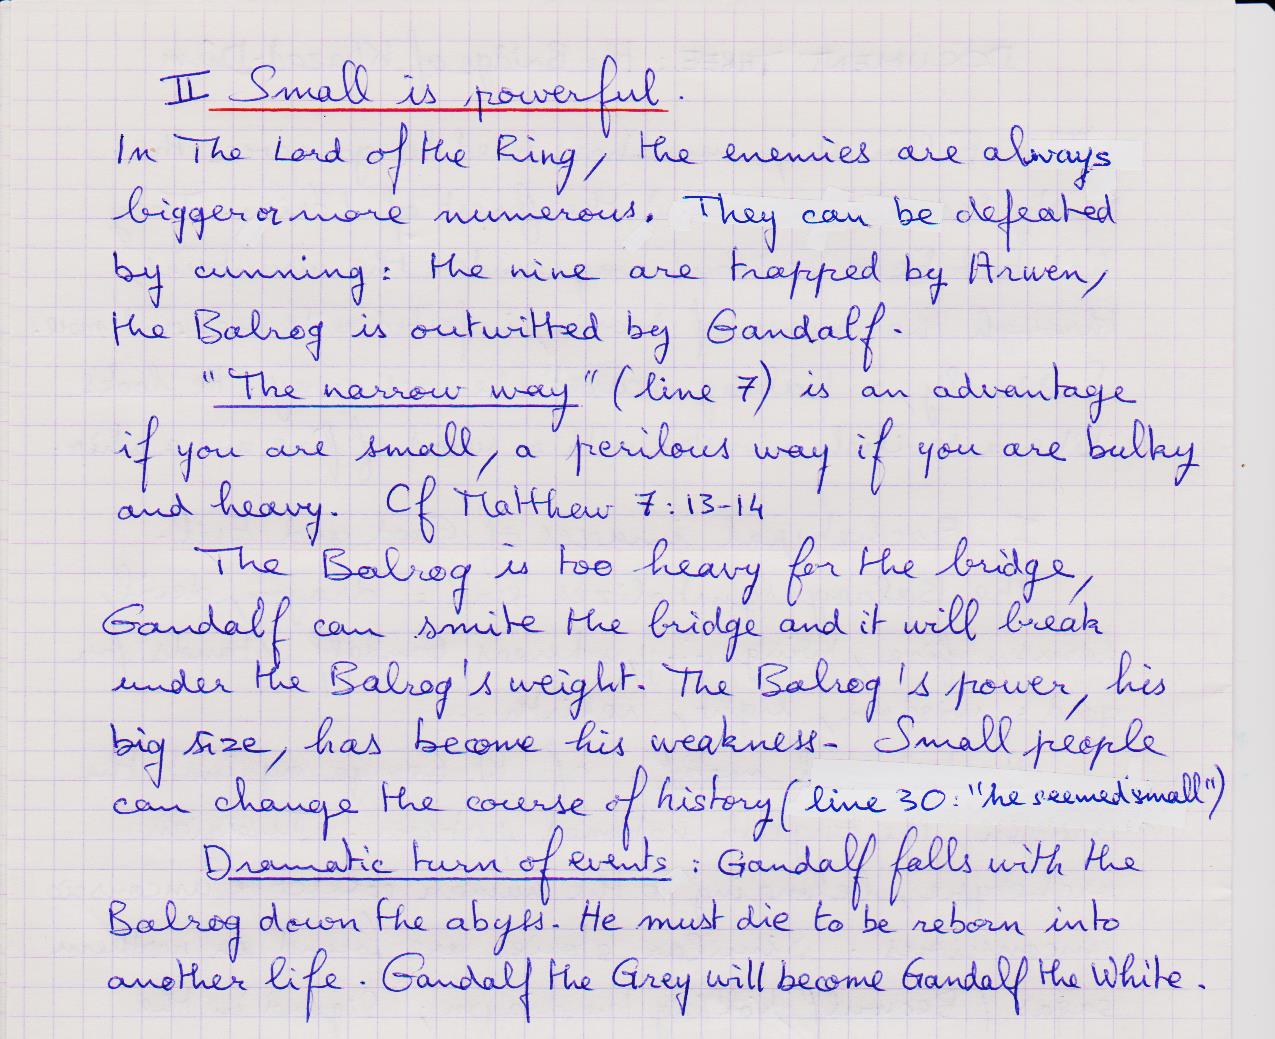 II Small is powerful.
In The Lord of the Ring, the enemies are always
bigger or more numerous. They can be defeated
by cunning: the nine are trapped by Arwen,
the Balrog is outwitted by Gandalf.
"The narrow way" (line 7) is an advantage
if you are small, a perilous way if you are bulky
and heavy. Cf Matthew 7:13-14
The Balrog is too heavy for the bridge,
Gandalf can smite the bridge and it will break
under the Balrog's weight. The Balrog's power, his
big size, has become his weakness. Small people
can change the course of history (line 30: "he seemed small")
Dramatic turn of events: Gandalf falls with the
Balrog down the abyss. He must die to be reborn into
another life. Gandalf the Grey will become Gandalf the White.